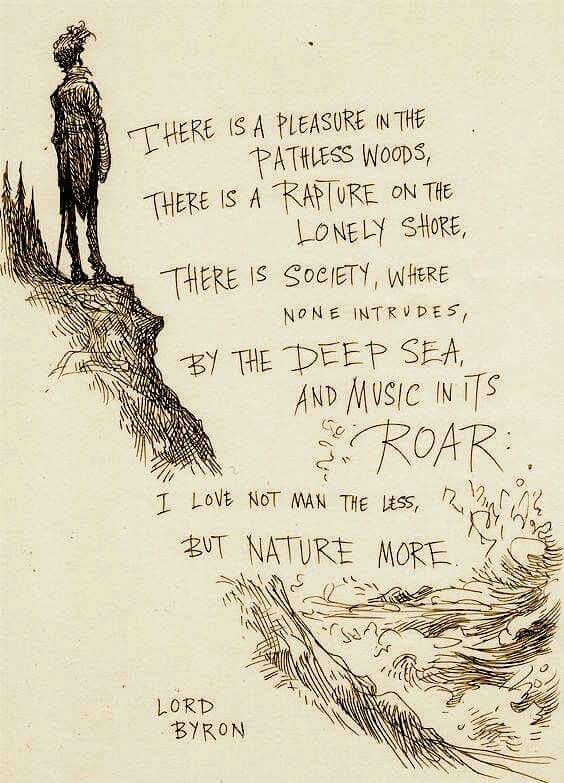 THERE IS A PLEASURE IN THE
PATHLESS WOODS,
THERE IS A RAPTURE ON THE
LONELY SHORE,
THERE IS SOCIETY, WHERE
NONE INTRUDES,
BY THE DEEP SEA,
AND MUSIC IN ITS
ROAR:
I LOVE NOT MAN THE LESS,
BUT NATURE MORE.
LORD
BYRON